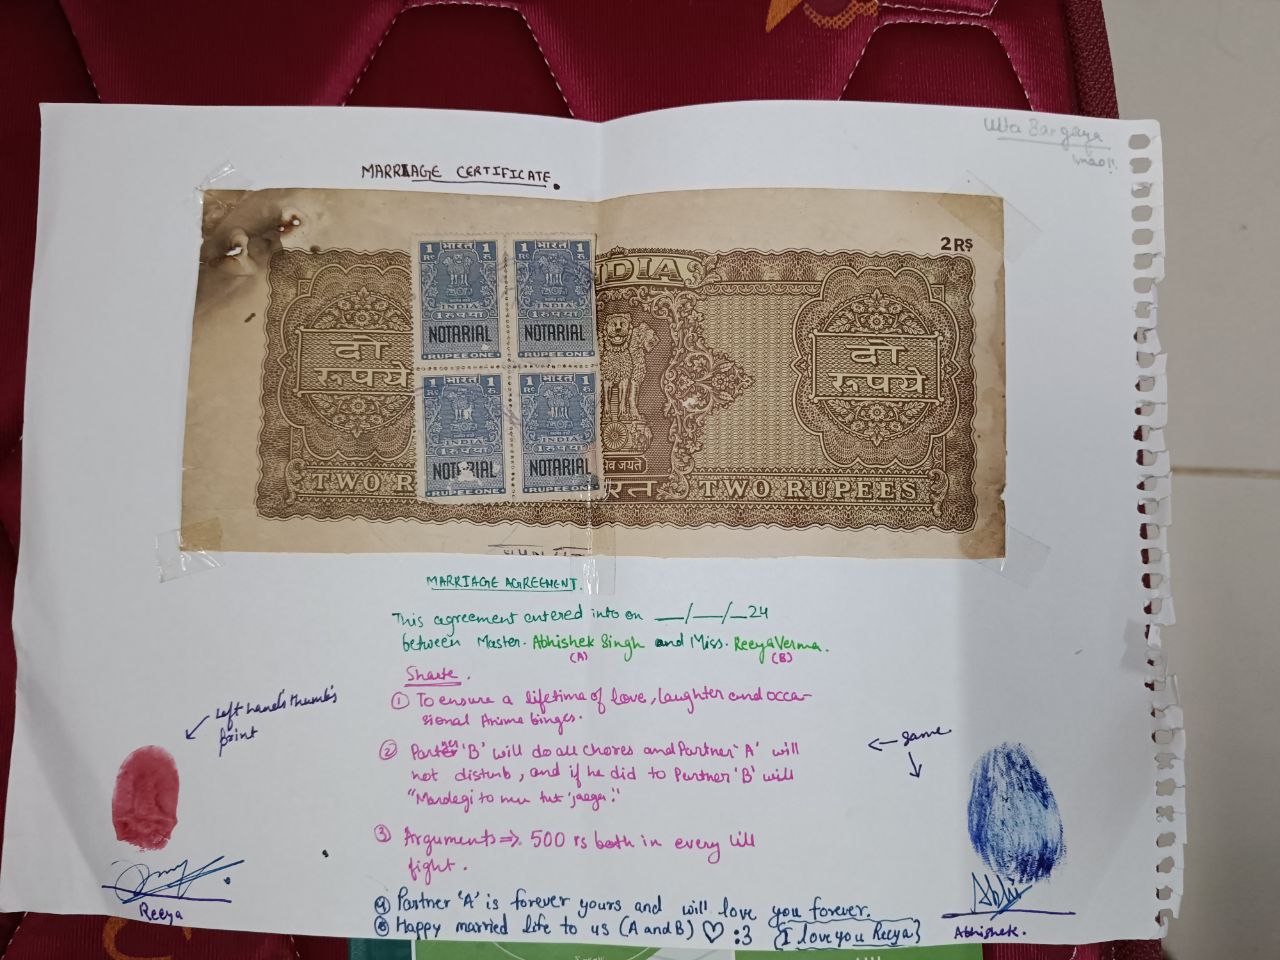 Ulta
lmao!!
MARRIAGE CERTIFICATE.
2 RS
1 भारत 1
RE रु.
INDIA
1 रुपया
NOTARIAL
RUPEE ONE
1 भारत 1
RE रु.
INDIA
1 रुपया
NOTARIAL
RUPEE ONE
1 भारत 1
RE रु.
INDIA
1 रुपया
NOTARIAL
RUPEE ONE
1 भारत 1
RE रु.
INDIA
1 रुपया
NOTARIAL
RUPEE ONE
NDIA
दो
रूपये
दो
रूपये
जयते
TWO R
रत
TWO RUPEES
MARRIAGE AGREEMENT.
This agreement entered into on __/__/_24
between Master. Abhishek Singh and Miss. Reeya Verma.
(A) (B)
1 To ensure a lifetime of love, laughter and occa-
sional Anime binges.
2 Partner 'B' will do all chores and Partner 'A' will
not disturb, and if he did to Partner 'B' will
3 Arguments => 500 rs both in every lil
fight.
4 Partner 'A' is forever yours and will love you forever.
Happy married life to us (A and B) ♡ :3 {I love you Reeya}
left hand's thumb's
print
same
Reeya
Abhi
Abhishek.